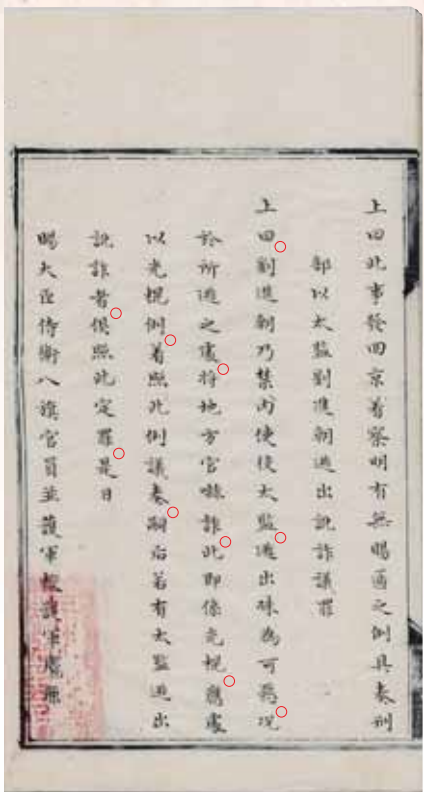 上曰此事發回京着察明有無賜卹之例具奏刑
部以太監劉進朝逃出訛詐議罪
上曰劉進朝乃禁內使役太監逃出殊為可惡況
於所逃之處將地方官嚇詐此即係光棍應處
以光棍例着照此例議奏嗣后若有太監逃出
訛詐者俱照此定罪是日
賜大臣侍衛八旗官員並護軍校護軍